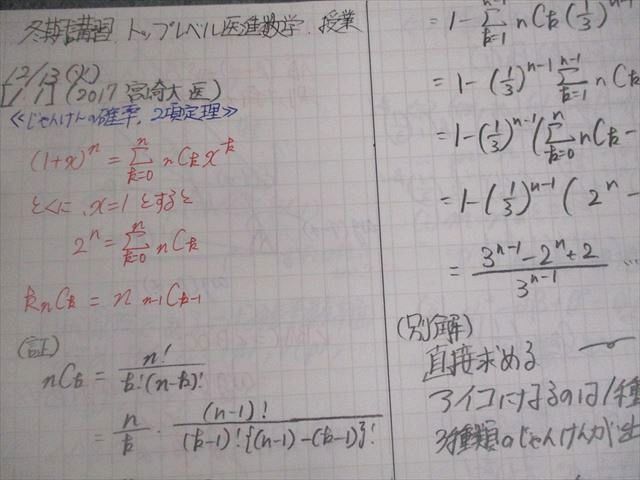 冬期講習 トップレベル医進数学 授業
12/13(火)
[1/1] (2017 宮崎大 医)
≪じゃんけんの確率, 2項定理≫
(1+x)^n = Σ_{k=0}^{n} nCk x^k
とくに, x=1 とすると
2^n = Σ_{k=0}^{n} nCk
k nCk = n n-1Ck-1
(証)
nCk = n! / k!(n-k)!
= n/k · (n-1)! / (k-1)!{(n-1)-(k-1)}!
= 1 - Σ_{k=1}^{n-1} nCk (1/3)
= 1 - (1/3)^{n-1} Σ_{k=1}^{n-1} nC
= 1 - (1/3)^{n-1} ( Σ_{k=0}^{n} nCk -
= 1 - (1/3)^{n-1} ( 2^n -
= (3^{n-1} - 2^n + 2) / 3^{n-1} …
(別解)
直接求める
アイコになるのは1種
3種類のじゃんけんが出